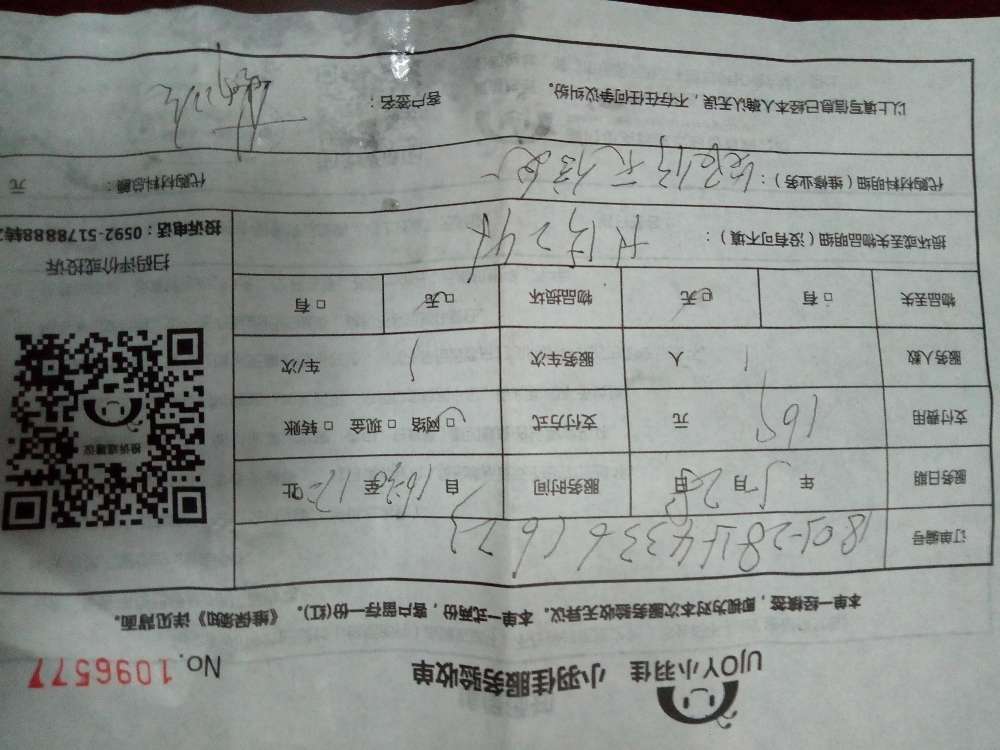 UJOY小羽佳 小羽佳服务验收单 No. 1096577
本单一经核签,即视为对本次服务验收无异议。本单一式两份,客户留存一份(红)。《维保须知》详见背面。
订单编号
服务日期 年 5月28日 服务时间 自16:30至17:30止
支付费用 169 元 支付方式 □网络 □现金 □转账
服务人数 1 人 服务车次 1 车/次
物品丢失 □有 □无 物品损坏 □无 □有
损坏或丢失物品明细(没有可不填):
代购材料明细(维修业务): 代购材料总额: 元
以上填写信息已经本人确认无误,不存在任何争议纠纷。 客户签名:
投诉或建议
扫码评价或投诉
投诉电话:0592-5178888转2